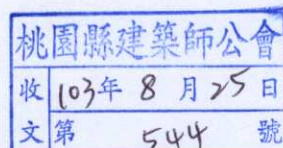 桃園縣建築師公會
收 103年 8 月 25 日
文 第 544 號